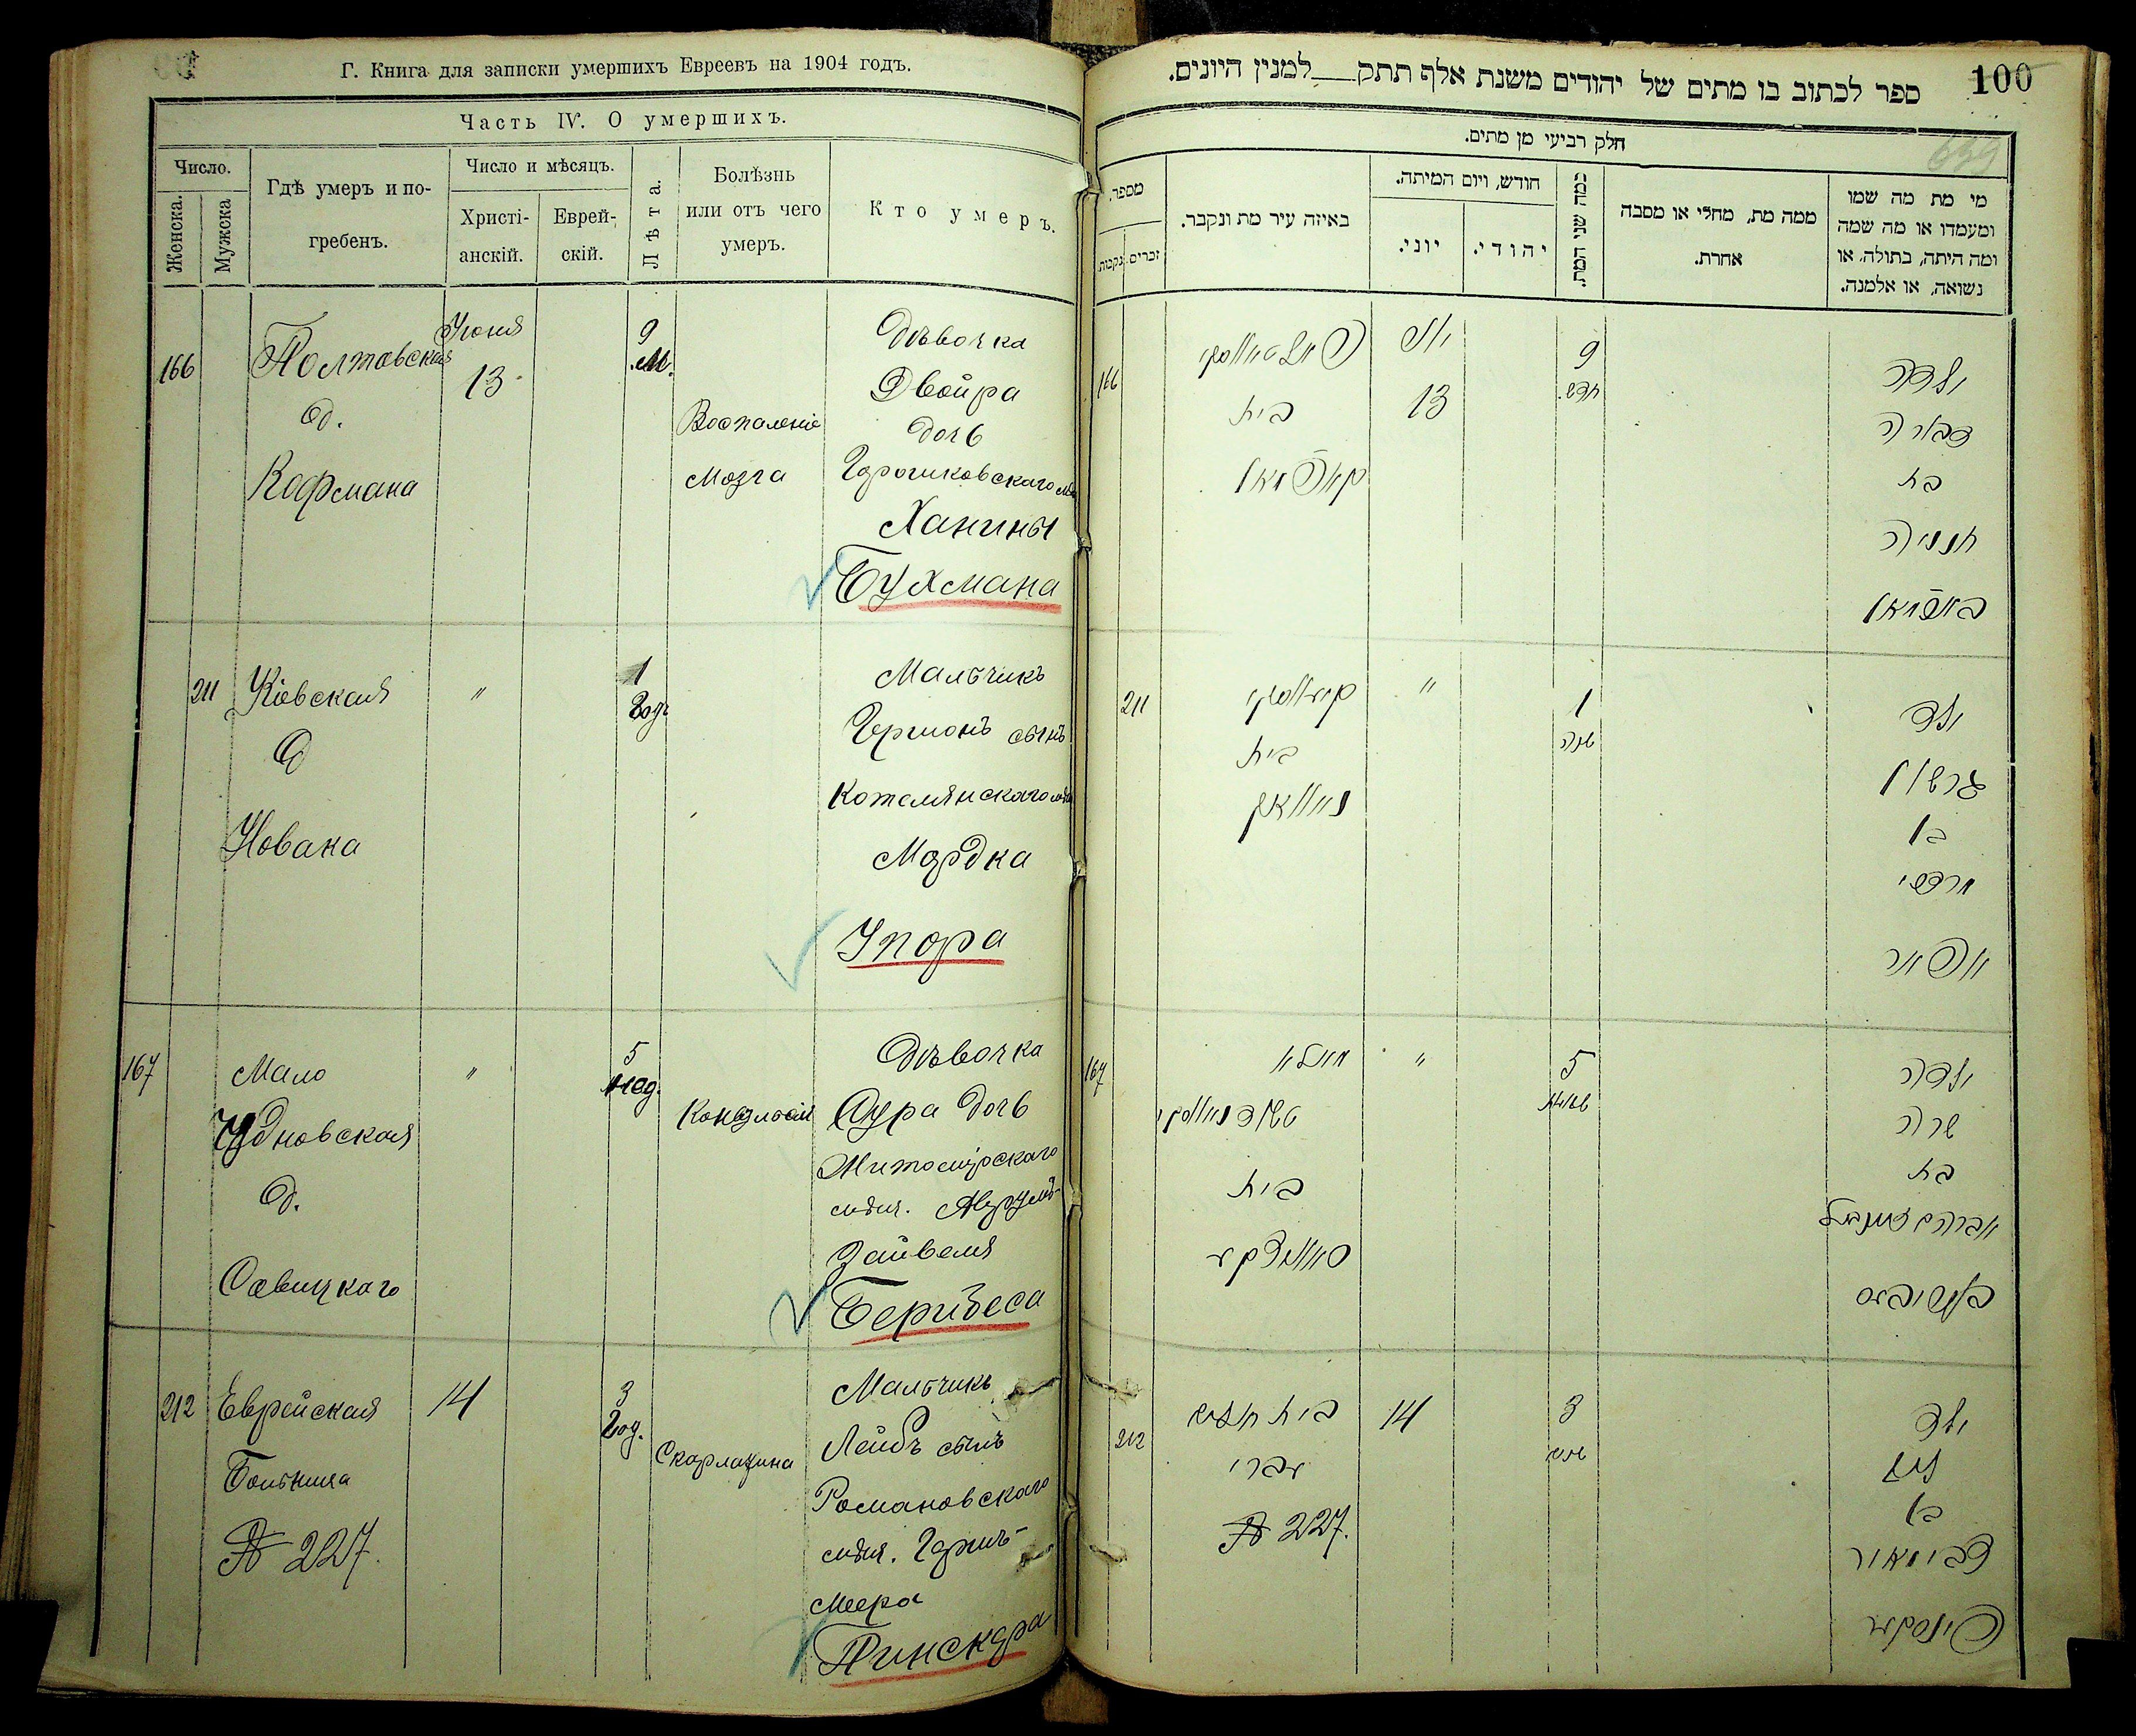 Г. Книга для записки умершихъ Евреевъ на 1904 годъ.
Часть IV. О умершихъ.
Число.
Женска.
Мужска
Гдѣ умеръ и по-
гребенъ.
Число и мѣсяцъ.
Христі-
анскій.
Еврей-
скій.
Лѣта.
Болѣзнь
или отъ чего
умеръ.
Кто умеръ.
166
Полтавская
д.
Кофмана
Іюня
13
9
м.
Воспаленіе
мозга
Дѣвочка
Двойра
дочь
Ханины
Бухмана
211
Кіевская
д
Новака
"
1
годъ
Мальчикъ
Гершонъ сынъ
Мордка
Упора
167
Мало
Чудновская
д.
Савицкаго
"
5
нед.
Дѣвочка
Сура дочь
Житомірскаго
мѣщ.
Зайвеля
212
Еврейская
Больница
№ 227.
14
3
год.
Скарлатина
Мальчикъ
Лейбъ сынъ
Романовскаго
мѣщ. Гершъ-
Меера
Пинскера
100
ספר לכתוב בו מתים של יהודים משנת אלף תתק__למנין היונים.
חלק רביעי מן מתים.
מספר.
נקבות.
זכרים.
באיזה עיר מת ונקבר.
חודש, ויום המיתה.
יוני.
יהודי.
כמה שני המת.
ממה מת, מחלי או מסבה
אחרת.
מי מת מה שמו
ומעמדו או מה שמה
ומה היתה, בתולה, או
נשואה, או אלמנה.
166
בית
קויפמאן
13
9
חדש.
ילדה
דבורה
בת
חנניה
211
בית
נוואק
"
1
שנה
ילד
גרשון
בן
מרדכי
167
בית
"
5
ילדה
שרה
בת
212
עברי
№ 227.
14
3
ילד
בן
צבי מאיר
פינסקער